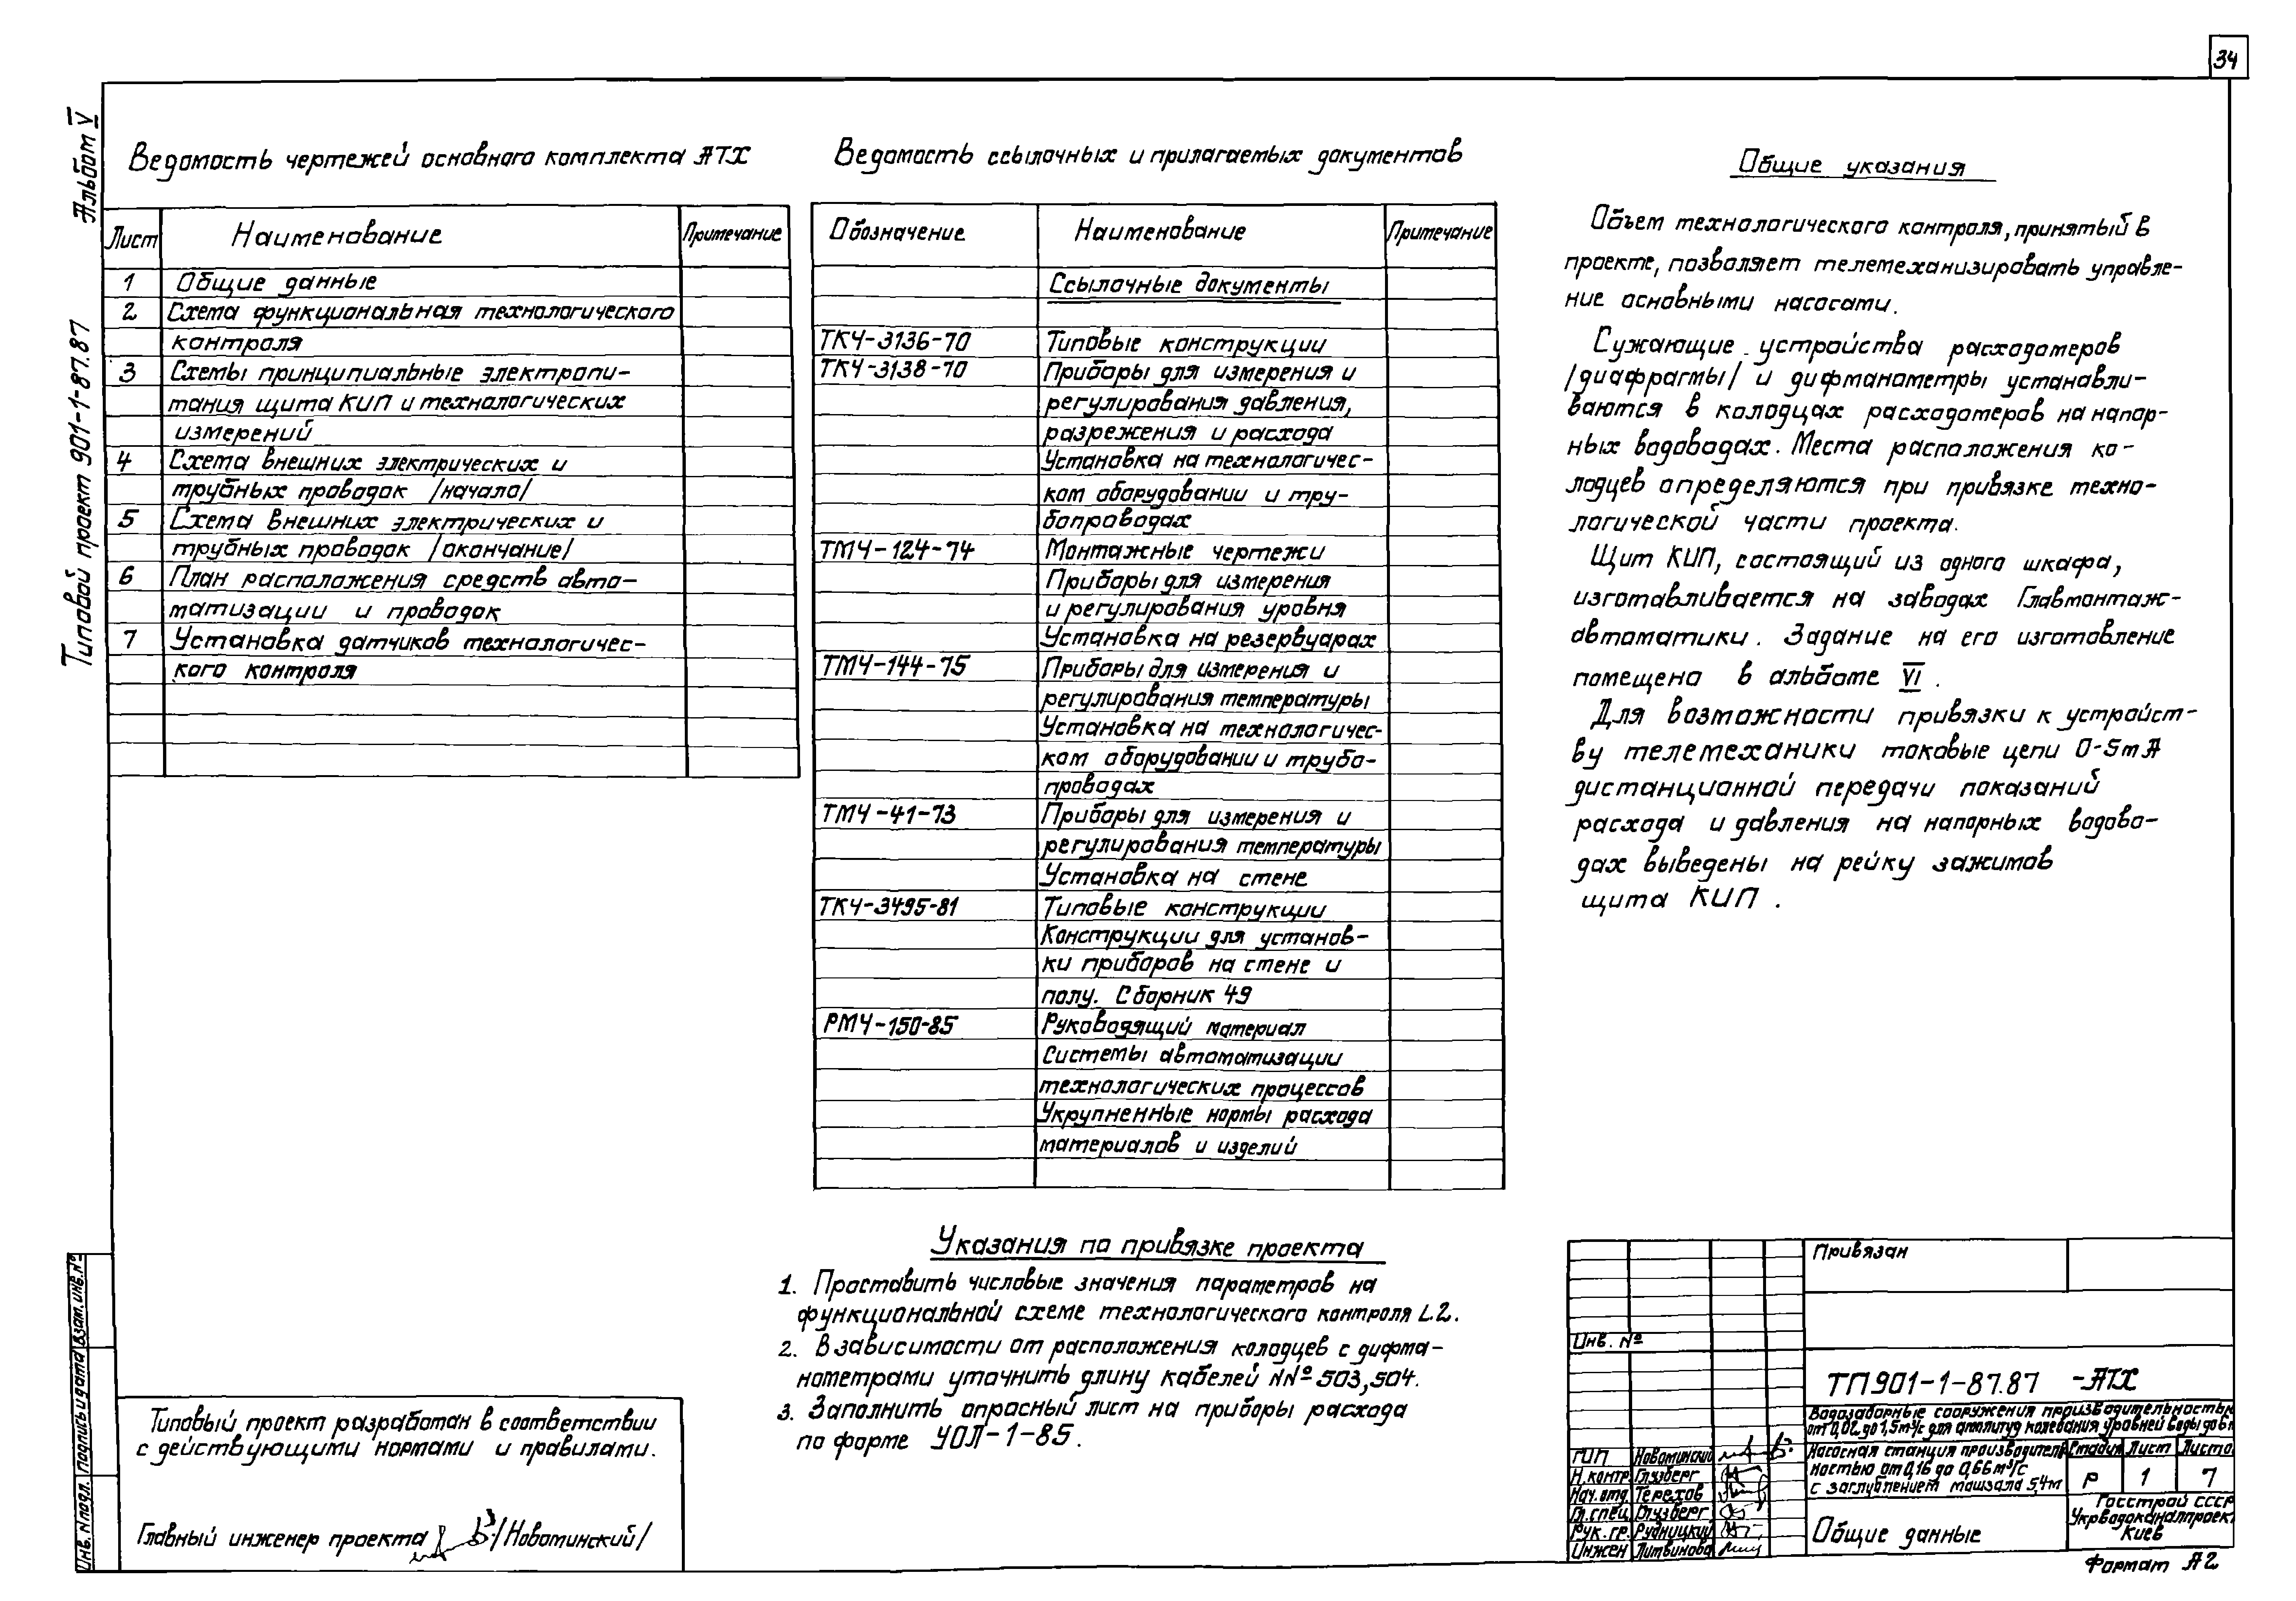 34
Альбом V
Типовой проект 901-1-87.87
Ведомость чертежей основного комплекта АТХ
Лист Наименование Примечание
1 Общие данные
2 Схема функциональная технологического
контроля
3 Схемы принципиальные электропи-
тания щита КИП и технологических
измерений
4 Схема внешних электрических и
трубных проводок /начало/
5 Схема внешних электрических и
трубных проводок /окончание/
6 План расположения средств авто-
матизации и проводок
7 Установка датчиков технологичес-
кого контроля
Ведомость ссылочных и прилагаемых документов
Обозначение Наименование Примечание
Ссылочные документы
ТКЧ-3136-70 Типовые конструкции
ТКЧ-3138-70 Приборы для измерения и
регулирования давления,
разрежения и расхода
Установка на технологичес-
ком оборудовании и тру-
бопроводах
ТМЧ-124-74 Монтажные чертежи
Приборы для измерения
и регулирования уровня
Установка на резервуарах
ТМЧ-144-75 Приборы для измерения и
регулирования температуры
Установка на технологичес-
ком оборудовании и трубо-
проводах
ТМЧ-41-73 Приборы для измерения и
регулирования температуры
Установка на стене
ТКЧ-3495-81 Типовые конструкции
Конструкции для установ-
ки приборов на стене и
полу. Сборник 49
РМЧ-150-85 Руководящий материал
Системы автоматизации
технологических процессов
Укрупненные нормы расхода
материалов и изделий
Общие указания
Объем технологического контроля, принятый в
проекте, позволяет телемеханизировать управле-
ние основными насосами.
Сужающие устройства расходомеров
/диафрагмы/ и дифманометры устанавли-
ваются в колодцах расходомеров на напор-
ных водоводах. Места расположения ко-
лодцев определяются при привязке техно-
логической части проекта.
Щит КИП, состоящий из одного шкафа,
изготавливается на заводах Главмонтаж-
автоматики. Задание на его изготовление
помещено в альбоме VI.
Для возможности привязки к устройст-
ву телемеханики токовые цепи 0-5mA
дистанционной передачи показаний
расхода и давления на напорных водово-
дах выведены на рейку зажимов
щита КИП.
Указания по привязке проекта
1. Проставить числовые значения параметров на
функциональной схеме технологического контроля L.2.
2. В зависимости от расположения колодцев с дифма-
нометрами уточнить длину кабелей №№ 503, 504.
3. Заполнить опросный лист на приборы расхода
по форме УОЛ-1-85.
Типовый проект разработан в соответствии
с действующими нормами и правилами.
Главный инженер проекта /Новоминский/
Инв. N подл. Подпись и дата Взам. инв. №
Привязан
Инв. №
ТП901-1-87.87 -АТХ
Водозаборные сооружения производительностью
от 0,02 до 1,5м³/с для амплитуд колебания уровней воды до 6м
Насосная станция производитель-
ностью от 0,16 до 0,66м³/с
с заглублением машзала 5,4м
Стадия Лист Листо
Р 1 7
ГИП Новоминский
Н.контр. Глузберг
Нач.отд. Терехов
Гл.спец. Глузберг
Рук.гр. Рудницкий
Инжен Литвинова
Общие данные
Госстрой СССР
Укрводоканалпроект
Киев
Формат А2